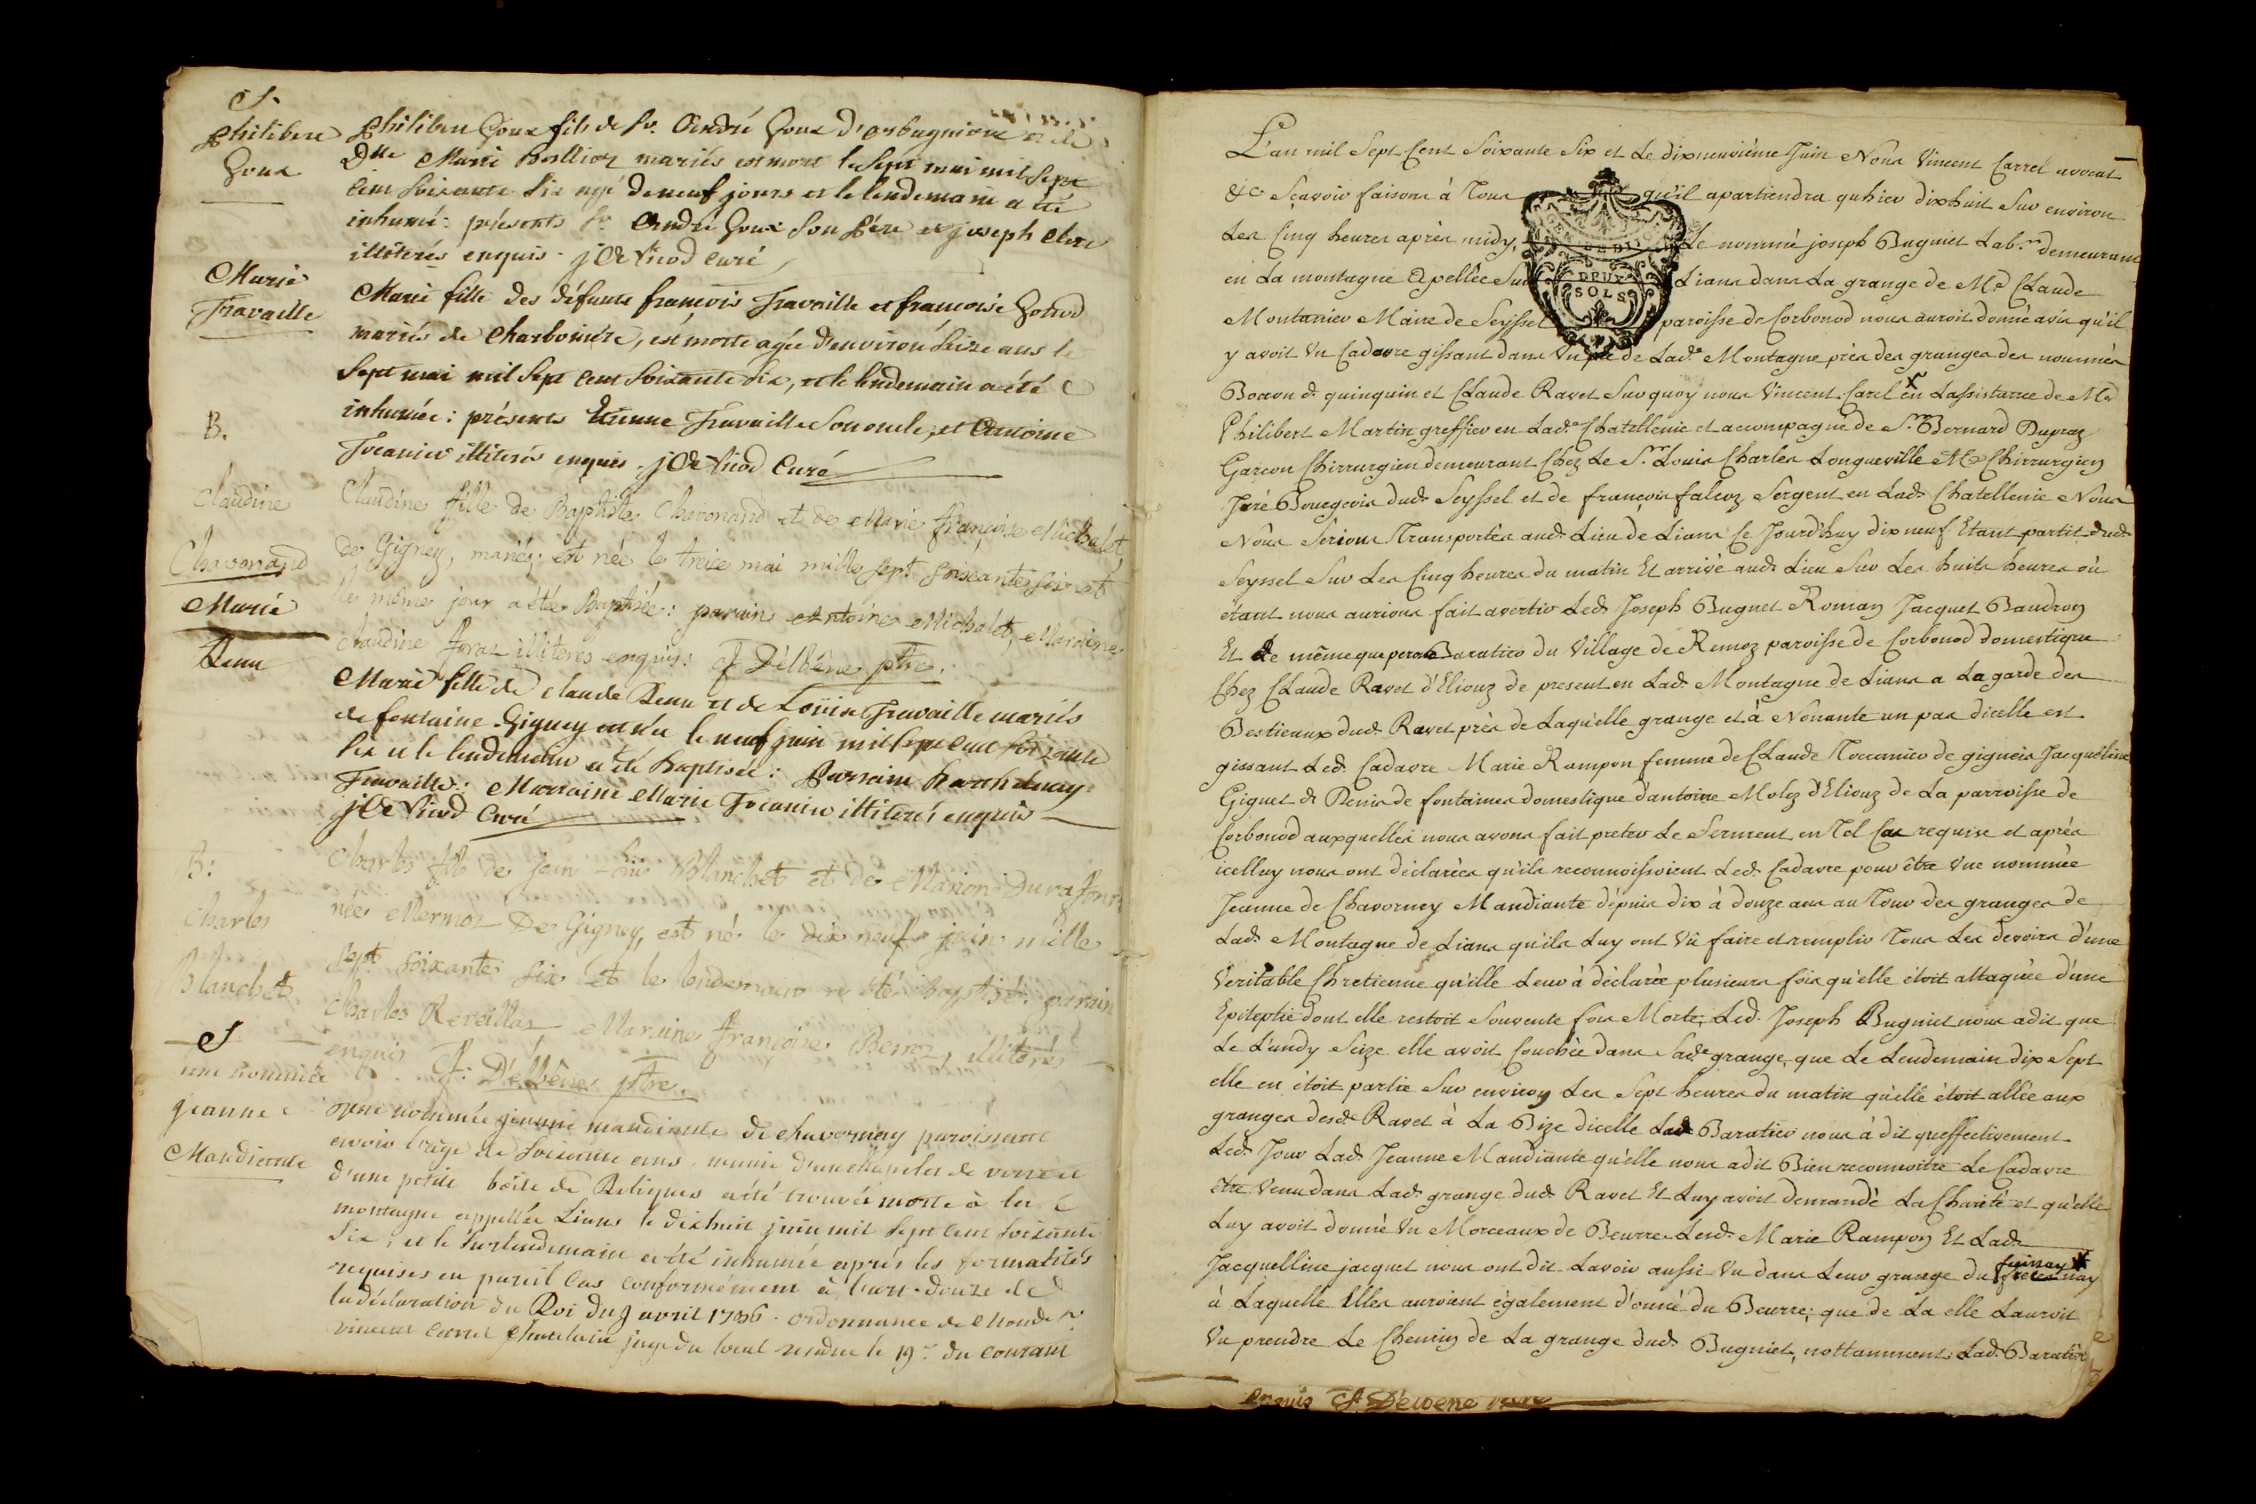 S.
Philibert
Goux
Philibert Goux fils de Sr. André Goux d'orbagnioux et de
Dlle Marie Ballioz mariés est mort le sept mai mil sept
cent soixante six agé de neuf jours et le lendemain a été
inhumé: présents Sr. André Goux son père et joseph
illitérés enquis. curé
Marie
Travaille
Marie fille des défunts francois Travaille et francoise
mariés de Charbonière, est morte agée d'environ seize ans le
sept mai mil sept cent soixante six, et le lendemain a été
inhumée: présents Etienne Travaille son oncle, et Antoine
Tocanier illiterés enquis. curé
B.
Claudine
Chavonand
Claudine fille de Baptiste Chavonand et de Marie françoise Michalet
de Gigney, mariés; est née le treize mai mille sept soixante six et
le même jour a étée Baptisée: parain Antoine Michalet, Maraine
claudine illiteres enquis: ptre.
Marie
Renu
Marie fille de claude Renu et de Loüise Travaille mariés
de fontaine Gigney est née le neuf juin mil sept cent soixante
six et le lendemain a été Baptisée: Parrain Barthelemy
Travaille: Marraine Marie Tocanier illiterés enquis
Curé
B:
Charles
Blanchet
Charles fils de Jean Loüis Blanchet et de Marion
née Mermoz De Gigney, est né le dix neuf juin mille
sept soixante six et le lendemain a été baptisé: parain
Charles Maraine françoise illiterés
enquis ptre.
S
une nommée
jeanne
Mandiante
une nommée jeanne mandiante de chavornay paroissant
avoir l'age de soixante ans, munie d'un chapelet de verre et
d'une petite boëte de Reliques a été trouvée morte à la
montagne appellée Lians le dixhuit juin mil sept cent soixante
six, et le surlendemain a été inhumée après les formalités
requises en pareil cas conformément à l'art. douze de
la déclaration du Roi du 9 avril 1736. ordonnance de
vincent Carrel Chatelain juge du local rendue le 19e du courant
L'an mil Sept Cent Soixante Six et Le dixneuvième Juin Nous Vincent Carrel avocat
&c Sçavoir faisons à Tous qu'il apartiendra quhier dixhuit Sur environ
Les Cinq heures après midy, Le nommé joseph Bugniet Lab.r demeurant
en La montagne Apellée Sur Lians dans La grange de Me Claude
Montanier Maire de Seyssel paroisse de Corbonod nous auroit donné avis qu'il
y avoit Un Cadavre gissant dans Un pré de Lad.e Montagne près des granges des nommés
Bocon d. quinquin et Claude Ravet Sur quoy nous Vincent Carel en Lassistance de Me
Philibert Martin greffier en Lad.e Chatellenie et accompagné de Sr. Bernard Dupraz
Garcon Chirurgien demeurant Chez Le Sr. Louis Charles Longueville Me Chirurgien
Juré Bourgeois dud. Seyssel et de françois falcoz Sergent en Lad. Chatellenie Nous
Nous Serions Transportés aud. Lieu de Lians Ce Jourd'huy dix neuf Etant partit dud.
Seyssel Sur Les Cinq heures du matin Et arrivé aud. Lieu Sur Les huits heures où
étant nous aurions fait avertir Led. Joseph Bugnet Romain Jacquet Baudron
Et de même que Baratier du Village de Remoz paroisse de Corbonod domestique
Chez Claude Ravet d'Eliouz de present en Lad. Montagne de Lians a La garde des
Bestieaux dud. Ravet près de Laqu'elle grange et à Nonante un pas dicelle est
gissant Led. Cadavre Marie Rampon femme de Claude Toccanier de gignéis Jacqueline
Giguet d. Renis de fontaines domestique d'antoine Molez d'Eliouz de La parroisse de
Corbonod auxquelles nous avons fait preter Le Serment en Tel Cas requise et après
icelluy nous ont déclarées qu'ils reconnoissoient Led. Cadavre pour être Une nommée
Jeanne de Chavorney Mandiante dépuis dix à douze ans au Tour des granges de
Lad. Montagne de Lians qu'ils Luy ont Vû faire et remplir Tous Les devoirs d'une
Veritable Chretienne qu'ille Leur à déclarée plusieurs fois qu'elle étoit attaquée d'une
Epileptie dont elle restoit Souvente fois Morte, Led. Joseph Bugniet nous adit que
Le L'undy Seize elle avoit Couchée dans Sad.e grange, que Le Lendemain dix Sept
elle en étoit partie Sur environ Les Sept heures du matin qu'elle étoit allée aux
granges desd. Ravet à La Bize dicelle Lad. Baratier nous à dit queffectivement
Led. Jour Lad. Jeanne Mandiante qu'elle nous adit Bien reconnoitre Le Cadavre
être Venu dans Lad. grange dud. Ravet Et Luy avoit demandé La Charité et qu'elle
Luy avoit donné Un Morceaux de Beurre Lesd. Marie Rampon Et Lad.
Jacquelline jacquet nous ont dit Lavoir aussi Vu dans Leur grange du
à Laquelle Elles auroient également d'onné du Beurre; que de La elle Lauroit
Vu prendre Le Chemin de La grange dud. Bugniet, nottamment Lad. Baratier
DEUX
SOLS
enquis